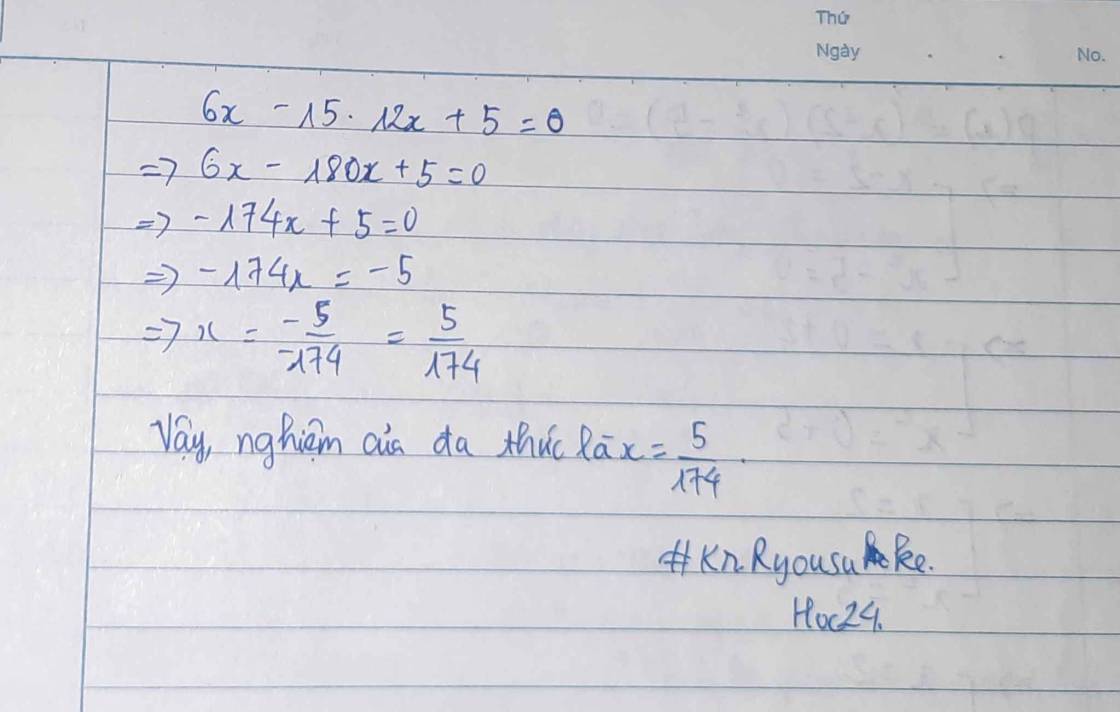 Thứ
Ngày . . No.
6x - 15. 12x + 5 = 0
=> 6x - 180x + 5 = 0
=> -174x + 5 = 0
=> -174x = -5
=> x = -5/-174 = 5/174
Vậy, nghiệm của đa thức là x = 5/174.
#Kn.Ryousuke.
Hoc24.